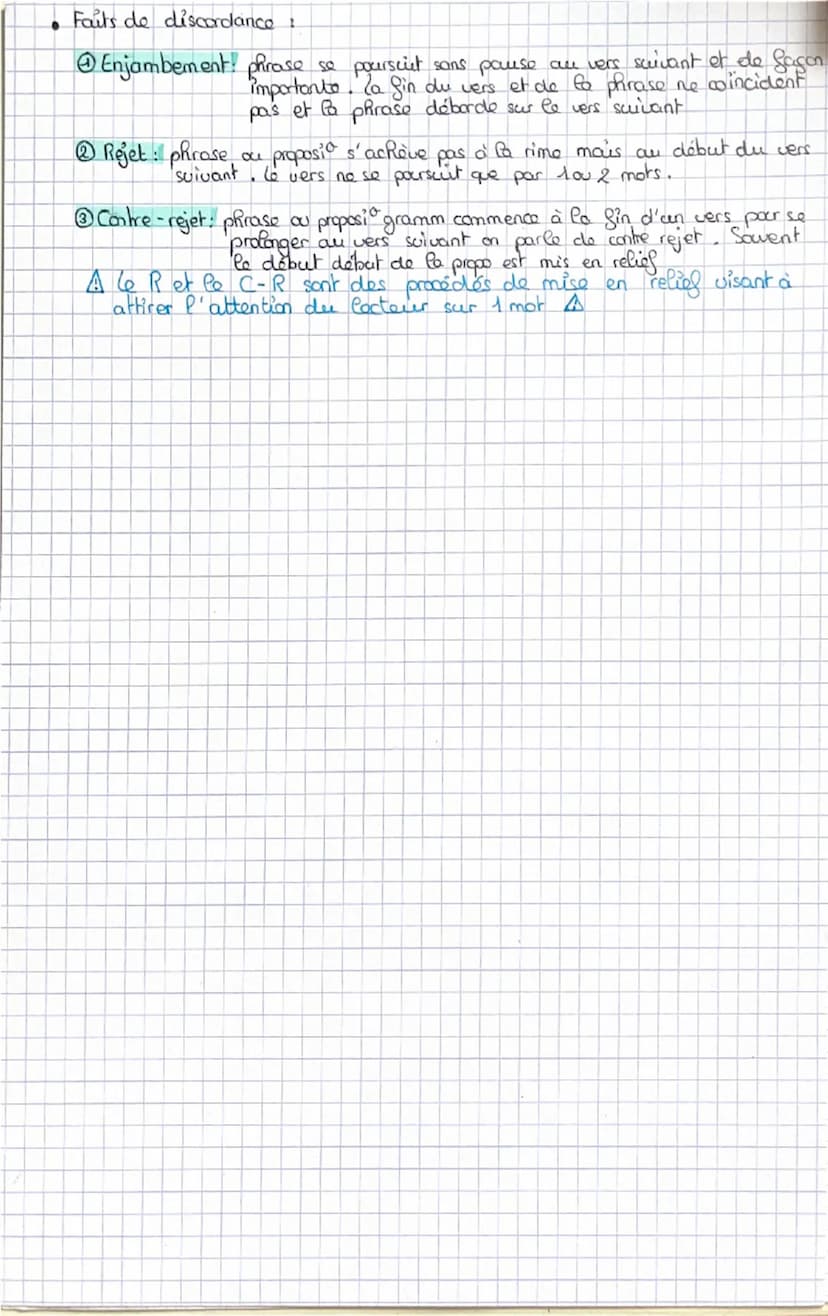 • Faits de discordance :
① Enjambement : phrase se poursuit sans pause au vers suivant et de façon
importante. La fin du vers et de la phrase ne coïncident
pas et la phrase déborde sur le vers suivant
② Rejet : phrase ou proposi° s'achève pas à la rime mais au début du vers
suivant. Le vers ne se poursuit que par 1 ou 2 mots.
③ Contre-rejet : phrase ou proposi° gramm commence à la fin d'un vers pour se
prolonger au vers suivant on parle de contre rejet. Souvent
le début début de la propo est mis en relief
⚠ Le R et le C-R sont des procédés de mise en relief visant à
attirer l'attention du lecteur sur 1 mot ⚠